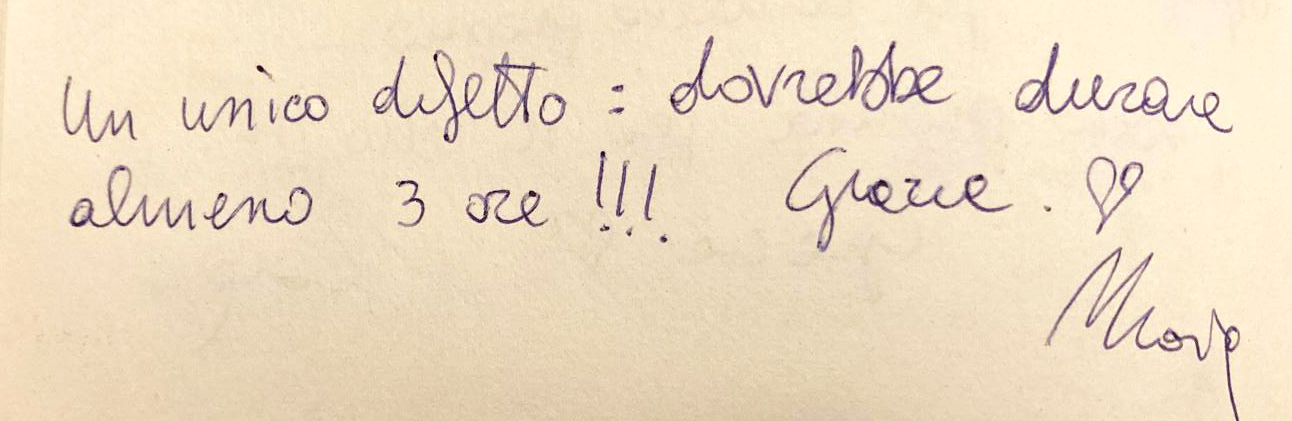 Un unico difetto : dovrebbe durare
almeno 3 ore !!! Grazie. ♡